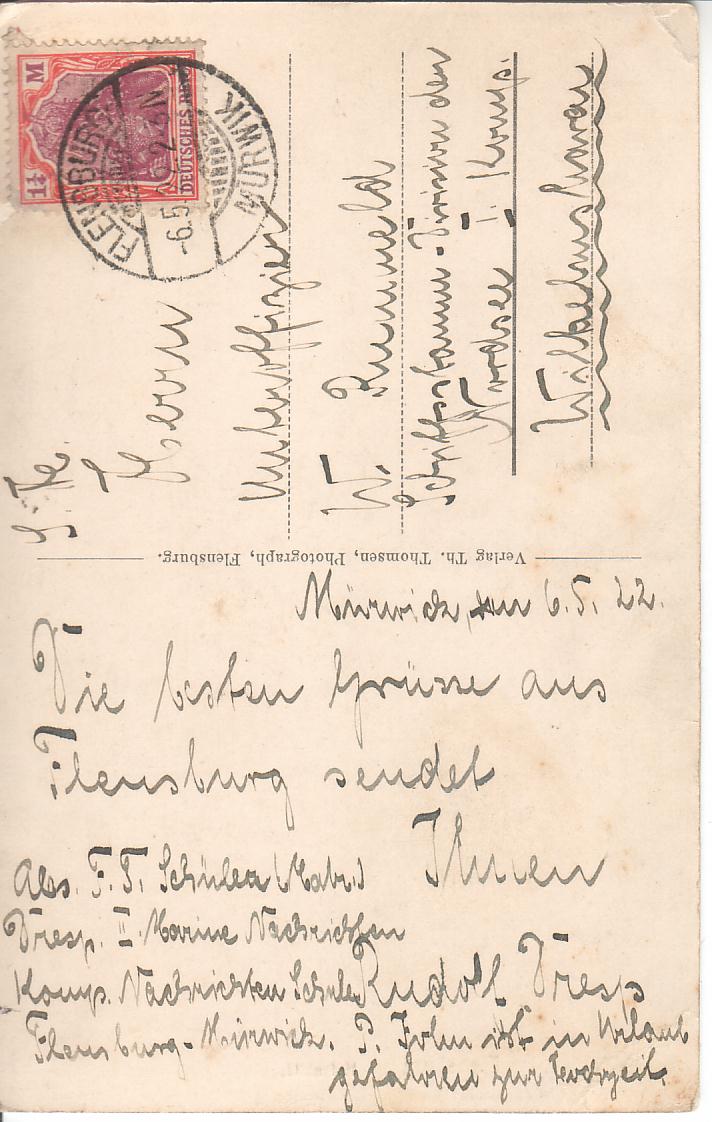 1¼ M
DEUTSCHES
FLENSBURG
MÜRWIK
-6.5
S. Kr.
Herrn
Unteroffizier
W.
Schiffsstamm-Division der
Nordsee I. Komp.
Wilhelmshaven
Verlag Th. Thomsen, Photograph, Flensburg.
Mürwick, den 6.5.22.
Die besten Grüsse aus
Flensburg sendet
Ihnen
Rudolf Dresp
Abs. F.T. Schüler (Matr.)
Dresp. II Marine Nachrichten
Komp. Nachrichten Schule
Flensburg-Mürwick.
P. ist in Urlaub
gefahren zur Hochzeit.